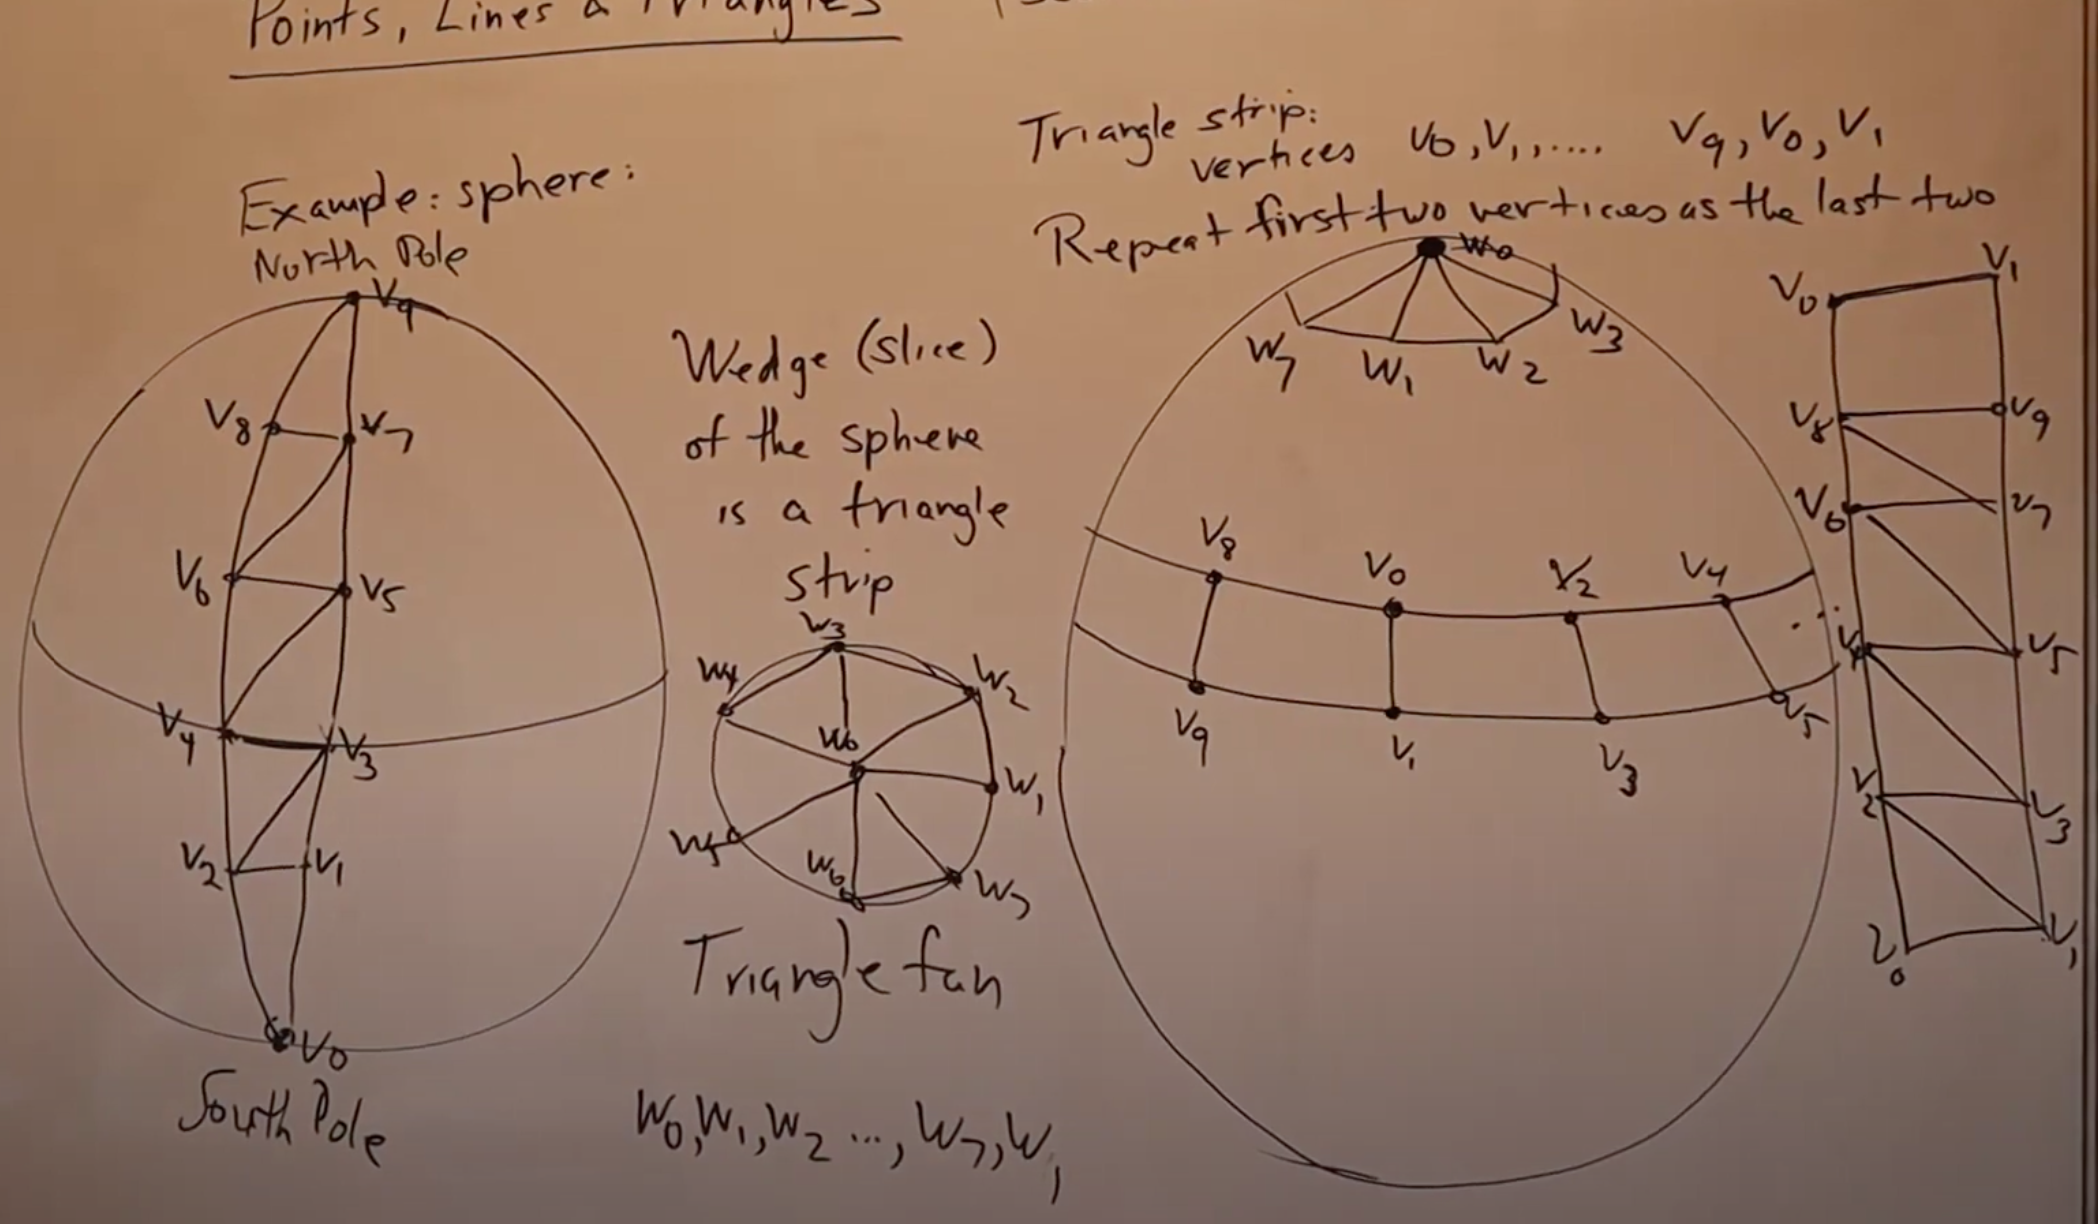 Points, Lines & Triangles
Example: sphere:
North Pole
V9
V8
V7
V6
V5
V4
V3
V2
V1
V0
South Pole
Wedge (slice)
of the sphere
is a triangle
strip
W3
W4
W2
W0
W1
W5
W6
W7
Triangle fan
W0, W1, W2 ..., W7, W1
Triangle strip:
vertices V0, V1, .... V9, V0, V1
Repeat first two vertices as the last two
W0
W7
W1
W2
W3
V8
V0
V2
V4
V9
V1
V3
V5
V0
V1
V8
V9
V6
V7
V4
V5
V2
V3
V0
V1